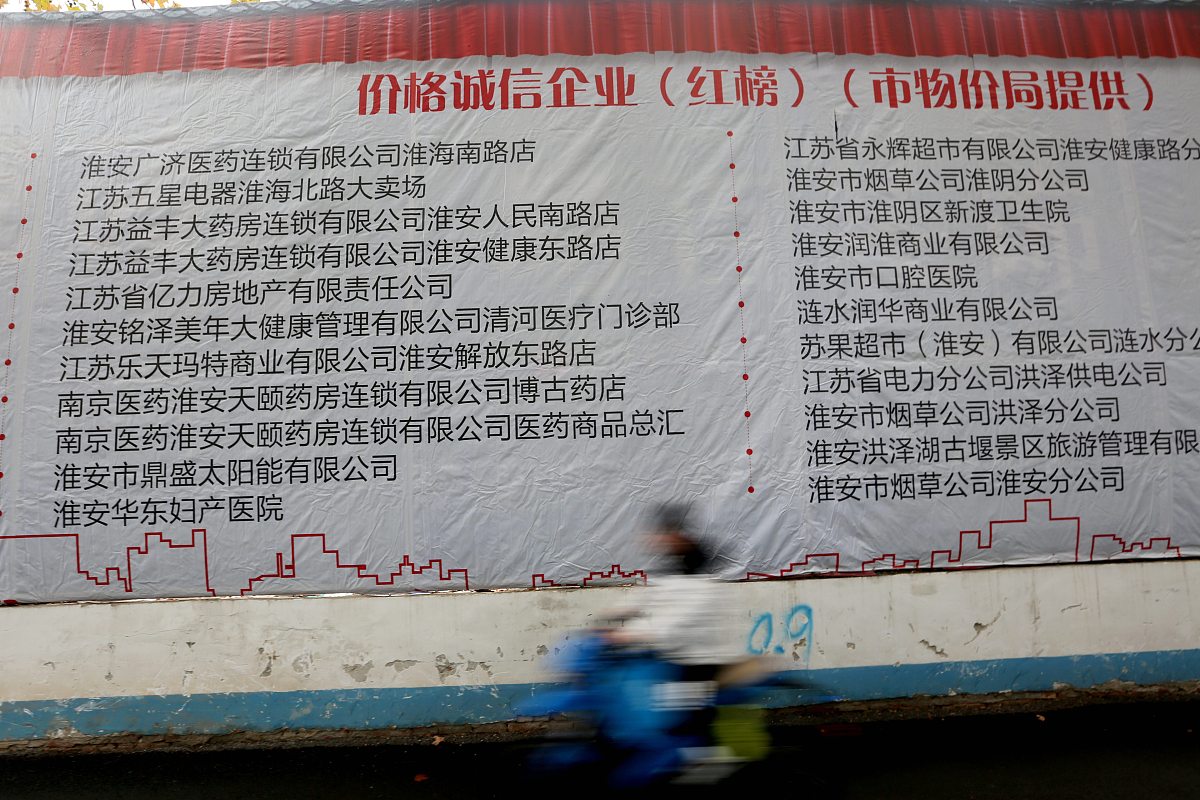 价格诚信企业（红榜）（市物价局提供）
淮安广济医药连锁有限公司淮海南路店
江苏五星电器淮海北路大卖场
江苏益丰大药房连锁有限公司淮安人民南路店
江苏益丰大药房连锁有限公司淮安健康东路店
江苏省亿力房地产有限责任公司
淮安铭泽美年大健康管理有限公司清河医疗门诊部
江苏乐天玛特商业有限公司淮安解放东路店
南京医药淮安天颐药房连锁有限公司博古药店
南京医药淮安天颐药房连锁有限公司医药商品总汇
淮安市鼎盛太阳能有限公司
淮安华东妇产医院
江苏省永辉超市有限公司淮安健康路分
淮安市烟草公司淮阴分公司
淮安市淮阴区新渡卫生院
淮安润淮商业有限公司
淮安市口腔医院
涟水润华商业有限公司
苏果超市（淮安）有限公司涟水分公
江苏省电力分公司洪泽供电公司
淮安市烟草公司洪泽分公司
淮安洪泽湖古堰景区旅游管理有限
淮安市烟草公司淮安分公司
0.9